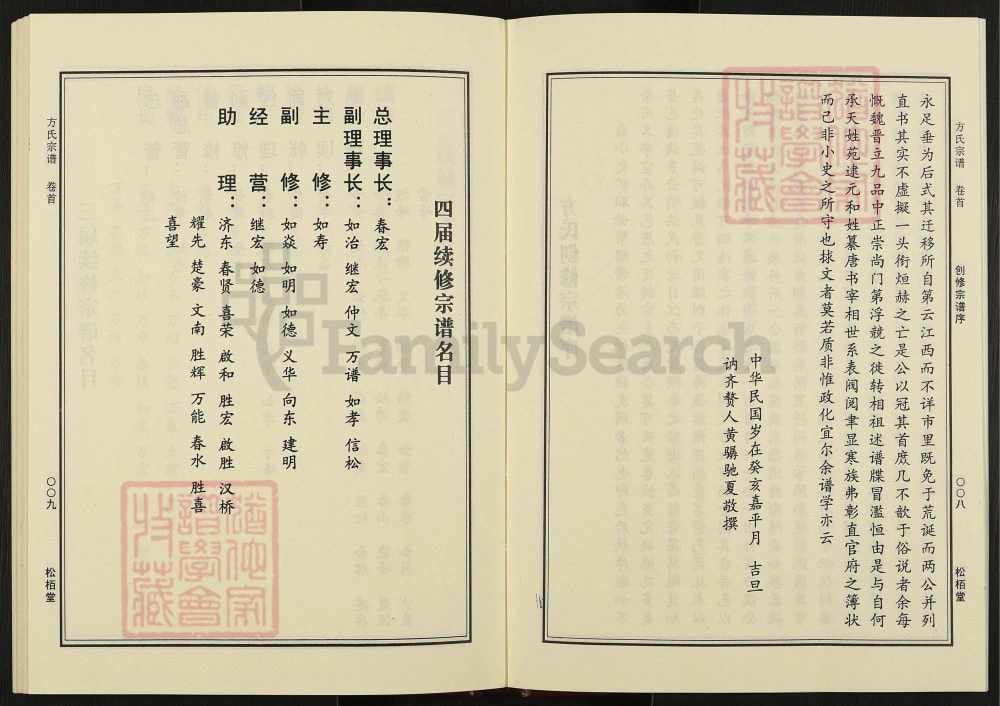 方氏宗谱 卷首
创修宗谱序
〇〇八
松栢堂
永足垂为后式其迁移所自第云江西而不详市里既免于荒诞而两公并列
直书其实不虚拟一头衔烜赫之亡是公以冠其首庶几不歆于俗说者余每
慨魏晋立九品中正崇尚门第浮兢之徙转相祖述谱牒冒滥恒由是与自何
承天姓苑逮元和姓纂唐书宰相世系表阀阅聿显寒族弗彰直官府之簿状
而己非小史之所守也捄文者莫若质非惟政化宜尔余谱学亦云
中华民国岁在癸亥嘉平月 吉旦
讷齐赘人黄骣驰夏敬撰
四届续修宗谱名目
总理事长：春宏
副理事长：如治 继宏 仲文 万谱 如孝 信松
主修：如寿
副修：如焱 如明 如德 义华 向东 建明
经营：继宏 如德
助理：济东 春贤 喜荣 啟和 胜宏 啟胜 汉桥
耀先 楚豪 文南 胜辉 万能 春水 胜喜
喜望
方氏宗谱 卷首
〇〇九
松栢堂
FamilySearch